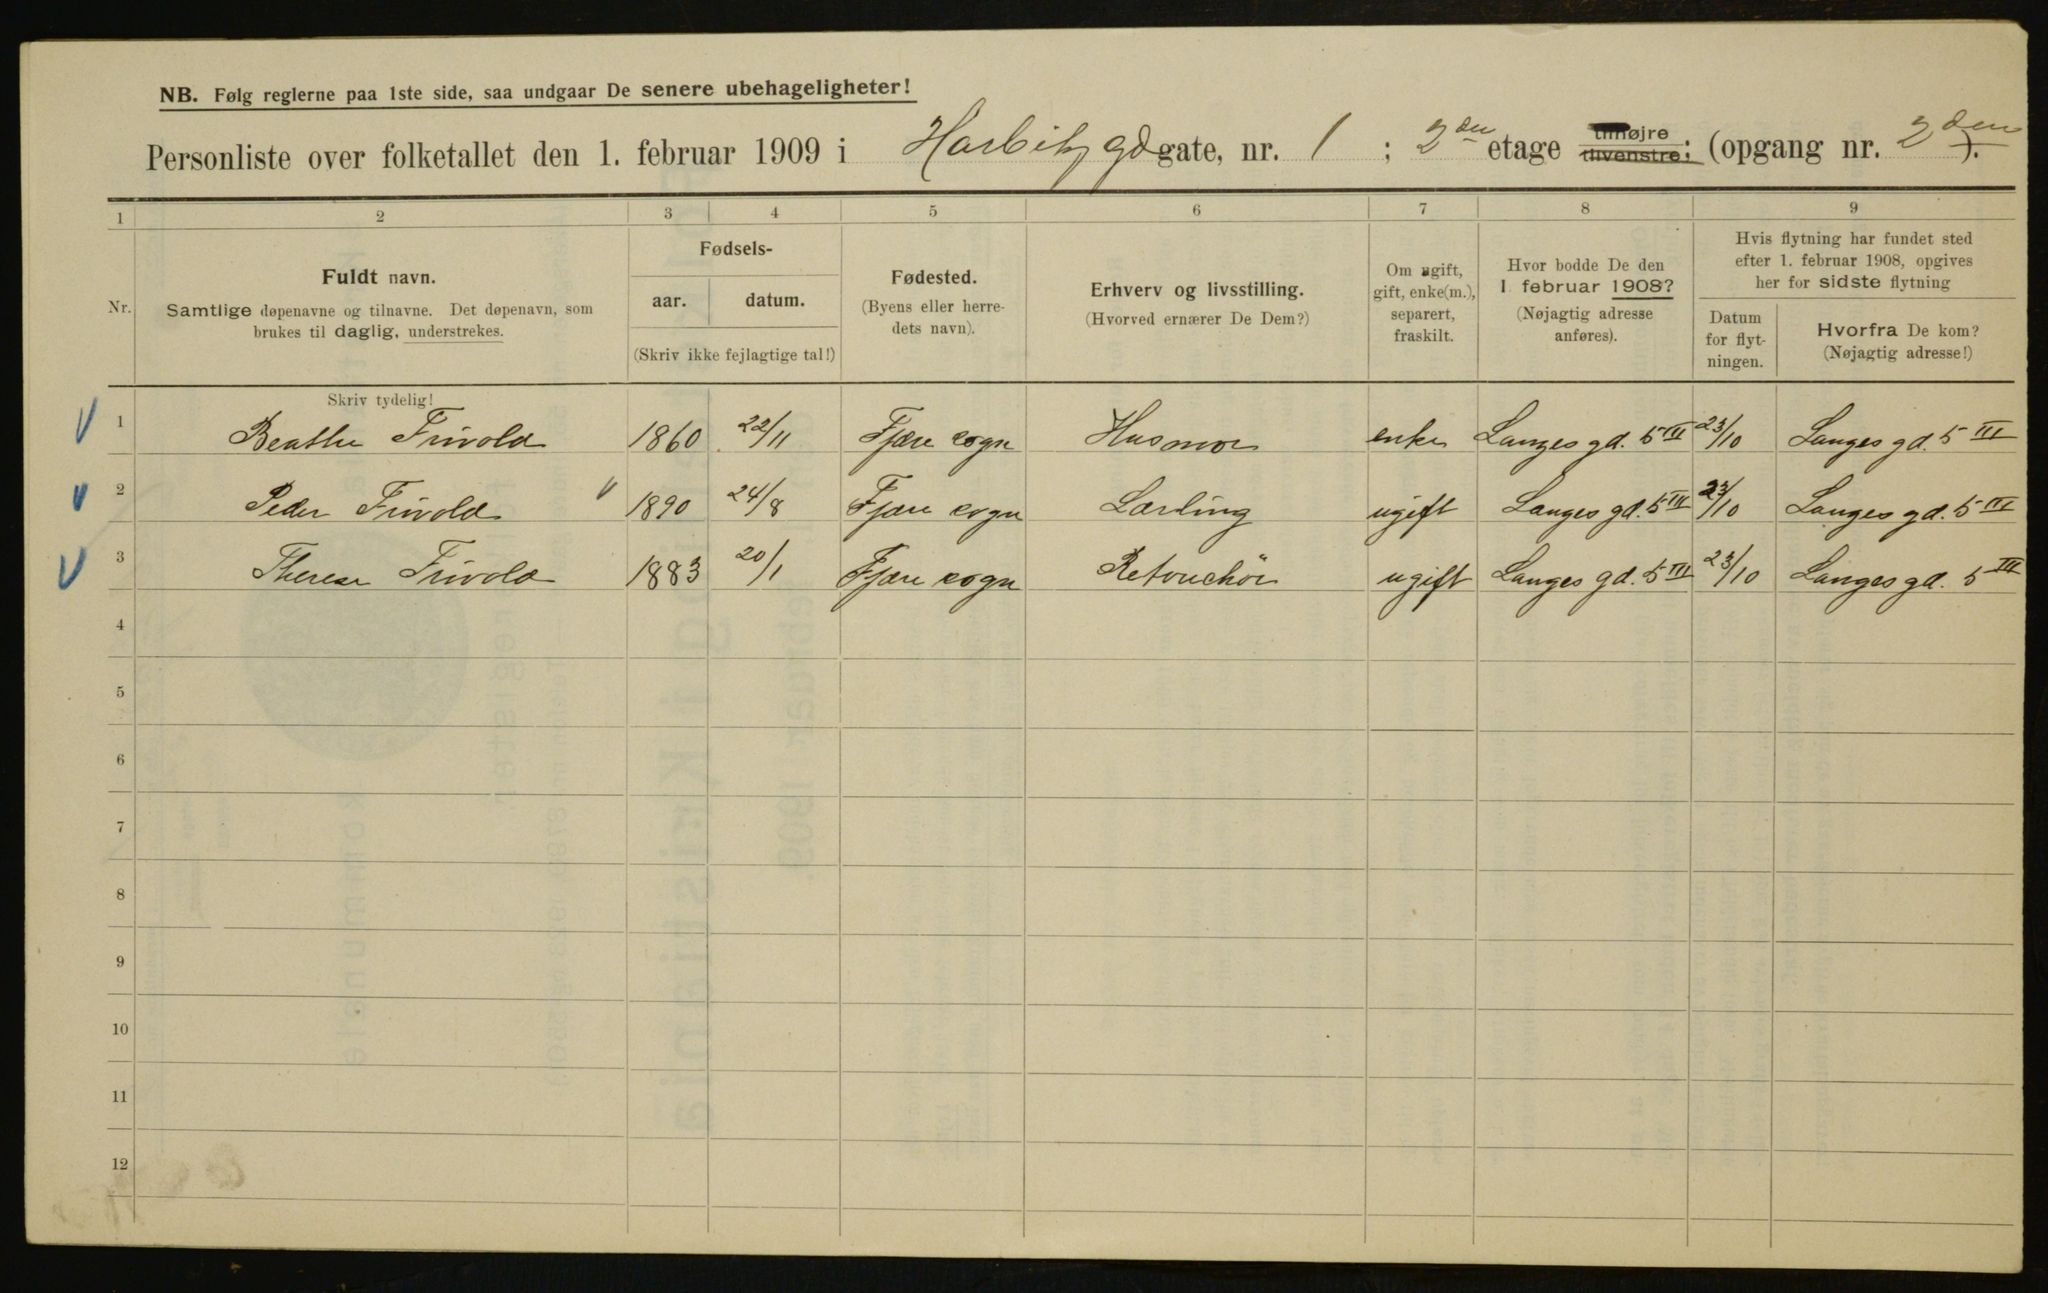 NB. Følg reglerne paa 1ste side, saa undgaar De senere ubehageligheter!
Personliste over folketallet den 1. februar 1909 i Harbitz gdgate, nr. 1 ; 2den etage tilhøjre tilvenstre; (opgang nr. 2den).
1 2 3 4 5 6 7 8 9
Nr.
Fuldt navn.
Samtlige døpenavne og tilnavne. Det døpenavn, som
brukes til daglig, understrekes.
Fødsels-
aar. datum.
(Skriv ikke fejlagtige tal!)
Fødested.
(Byens eller herre-
dets navn).
Erhverv og livsstilling.
(Hvorved ernærer De Dem?)
Om ugift,
gift, enke(m.),
separert,
fraskilt.
Hvor bodde De den
1. februar 1908?
(Nøjagtig adresse
anføres).
Hvis flytning har fundet sted
efter 1. februar 1908, opgives
her for sidste flytning
Datum
for flyt-
ningen.
Hvorfra De kom?
(Nøjagtig adresse!)
Skriv tydelig!
1 Beathe Frivold 1860 22/11 Fjære sogn Husmor enke Langes gd. 5 III 23/10 Langes gd. 5 III
2 Peder Frivold 1890 24/8 Fjære sogn Lærling ugift Langes gd. 5 III 23/10 Langes gd. 5 III
3 Therese Frivold 1883 20/1 Fjære sogn Retouchör ugift Langes gd. 5 III 23/10 Langes gd. 5 III
4
5
6
7
8
9
10
11
12